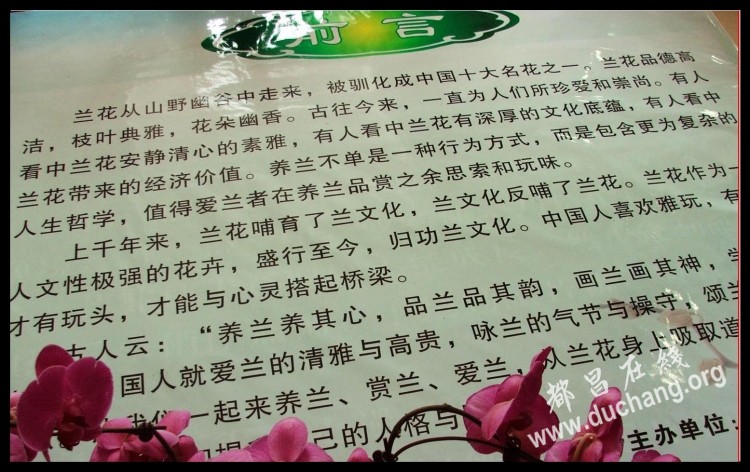 前言
兰花从山野幽谷中走来，被驯化成中国十大名花之一。兰花品德高
洁，枝叶典雅，花朵幽香。古往今来，一直为人们所珍爱和崇尚。有人
看中兰花安静清心的素雅，有人看中兰花有深厚的文化底蕴，有人看中
兰花带来的经济价值。养兰不单是一种行为方式，而是包含更为复杂的
人生哲学，值得爱兰者在养兰品赏之余思索和玩味。
上千年来，兰花哺育了兰文化，兰文化反哺了兰花。兰花作为一
人文性极强的花卉，盛行至今，归功兰文化。中国人喜欢雅玩，有
才有玩头，才能与心灵搭起桥梁。
古人云：“养兰养其心，品兰品其韵，画兰画其神，
国人就爱兰的清雅与高贵，咏兰的气节与操守，颂兰
一起来养兰、赏兰、爱兰，从兰花身上吸取道
己的人格与
主办单位：
都昌在线
www.duchang.org